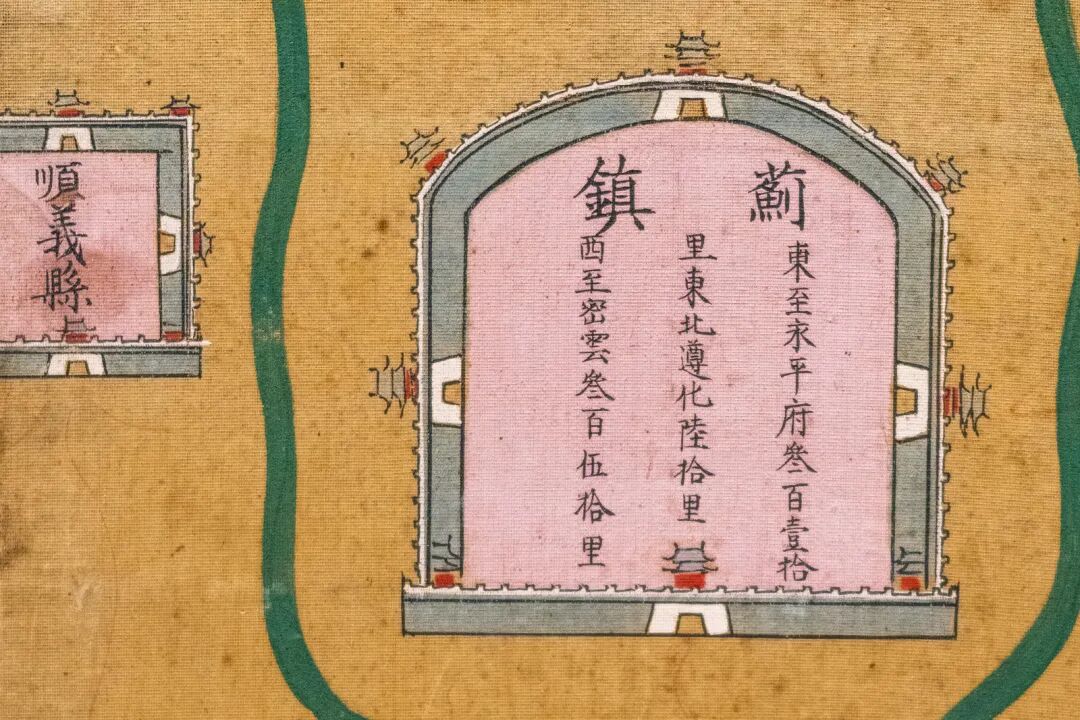 薊鎮
東至永平府叁百壹拾
里東北遵化陸拾里
西至密雲叁百伍拾里
順義縣